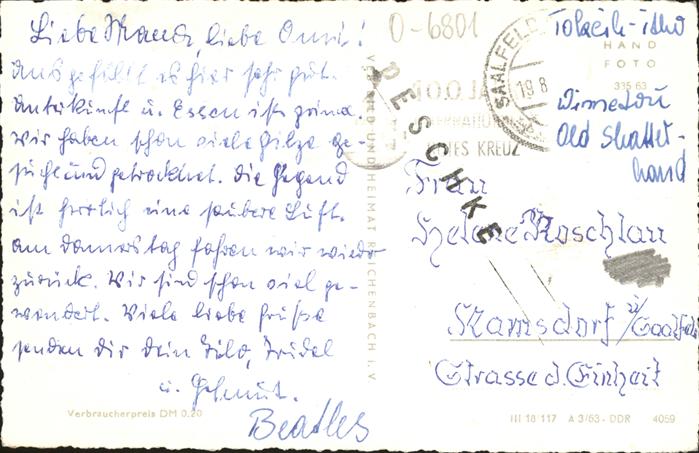 Liebe Mama, liebe Omi!
Uns gefällt es hier sehr gut.
Unterkunft u. Essen ist prima.
Wir haben schon viele Pilze ge-
sucht und getrocknet. Die Gegend
ist herrlich eine saubere Luft.
Am Donnerstag fahren wir wieder
zurück. Wir sind schon viel ge-
wandert. Viele liebe Grüße
senden dir dein Fritz, Friedel
u. Helmut.
Beatles
Verbraucherpreis DM 0.20
VERLAG BILD UND HEIMAT REICHENBACH I. V.
0-6801
RESCHKE
SAALFELD
19 8
100 JA
ROTES KREUZ
HAND
FOTO
335 63
Tokeih-itho
Winnetou
Old Shatter-
hand
Frau
Helene Roschlau
Kamsdorf i/Saalfeld
Strasse d. Einheit
III 18 117 A 3/63 - DDR 4059